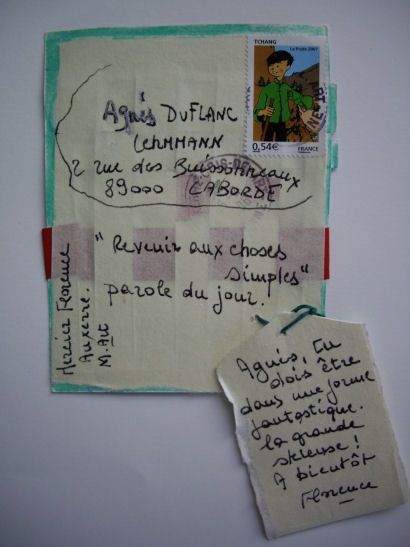 TCHANG
La Poste 2007
0,54€ FRANCE
Agnès DUFLANC
LEHMMANN
2 rue des
89000 LABORDE
"Revenir aux choses
simples"
parole du jour.
Mercier Florence
Auxerre.
M. Art
Agnès, tu
dois être
dans une forme
fantastique.
la grande
skieuse !
A bientôt
Florence